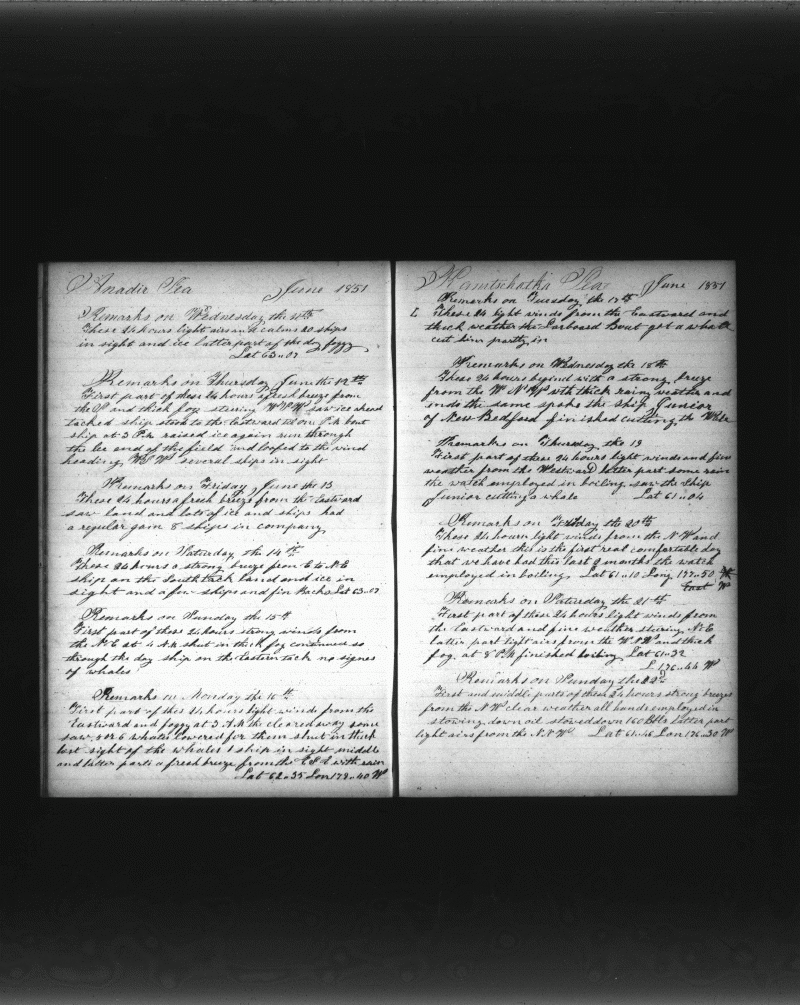 Anadir Sea June 1851
Remarks on Wednesday the 11th
These 24 hours light airs and calms 20 ships
in sight and ice latter part of the day foggy
Lat 63..07
Remarks on Thursday June the 12th
First part of these 24 hours a fresh breeze from
the S and thick fog stering WSW saw ice ahead
tacked ship stood to the Eastward til on P.M. bout
ship at 3 P.M. raised ice again run through
the lee end of the field and loofed to the wind
heading WSW several ships in sight
Remarks on Friday June the 13
These 24 hours a fresh breeze from the Eastward
saw land and lots of ice and ships had
a regular gam 8 ships in company
Remarks on Saturday the 14th
These 24 hours a strong breeze from E to NE
ship on the South tack land and ice in
sight and a few ships and fin Backs Lat 63..07
Remarks on Sunday the 15th
First part of these 24 hours strong winds from
the N.E at 4 A.M. shut in thick fog continued so
through the day ship on the Eastern tack no signes
of whales
Remarks on Monday the 16th
First part of this 24 hours light winds from the
Eastward and foggy at 3 A.M. the cleared away some
saw 5 or 6 whales lowered for them shut in thick
lost sight of the whales 1 ship in sight middle
and latter parts a fresh breeze from the ESE with rain
Lat 62..35 Lon 179..40 W
Kamtschatka Sea June 1851
Remarks on Tuesday the 17th
L These 24 light winds from the Eastward and
thick weather the Larboard Boat got a whale
cut him partly in
Remarks on Wednesday the 18th
These 24 hours begind with a strong breeze
from the W N W with thick rainy weather and
ends the same spoke the ship Junior
of New Bedford finished cutting the Whale
Remarks on Thursday the 19
First part of these 24 hours light winds and fine
weather from the Westward latter part some rain
the watch employed in boiling saw the Ship
Junior cutting a whale Lat 61..04
Remarks on Friday the 20th
These 24 hours light winds from the N.W and
fine weather this is the first real comfortable day
that we have had this last 2 months the watch
employed in boiling Lat 61..10 Long 177..50
East W
Remarks on Saturday the 21th
First part of these 24 hours light winds from
the Eastward and fine weather stering N.E
latter part light airs from the W.N.W and thick
fog. at 8 P.M finished boiling Lat 61..32
L. 176..44 W
Remarks on Sunday the 22d
First and middle parts of these 24 hours strong breezes
from the N.W clear weather all hands employed in
stowing down oil stowed down 160 Bbls Latter part
light airs from the N.N.W Lat 61..46 Lon 176..30 W